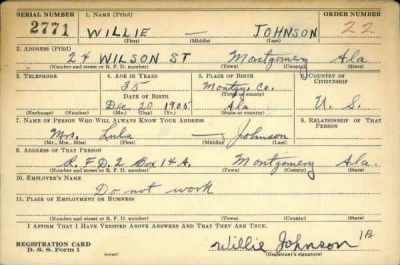 SERIAL NUMBER 1. NAME (Print) ORDER NUMBER
2771 WILLIE — JOHNSON 22
(First) (Middle) (Last)
2. ADDRESS (Print)
24 WILSON ST Montgomery Ala
(Number and street or R. F. D. number) (Town) (County) (State)
3. TELEPHONE 4. AGE IN YEARS 5. PLACE OF BIRTH 6. COUNTRY OF CITIZENSHIP
35 Montgy. Co.
DATE OF BIRTH (Town or county)
Dec 20 1905 Ala U. S.
(Exchange) (Number) (Mo.) (Day) (Yr.) (State or country)
7. NAME OF PERSON WHO WILL ALWAYS KNOW YOUR ADDRESS 8. RELATIONSHIP OF THAT PERSON
Mrs. Lula — Johnson
(Mr., Mrs., Miss) (First) (Middle) (Last)
9. ADDRESS OF THAT PERSON
R.F.D. 2 Box 14A. Montgomery Ala.
(Number and street or R. F. D. number) (Town) (County) (State)
10. EMPLOYER'S NAME
Do not work
11. PLACE OF EMPLOYMENT OR BUSINESS
(Number and street or R. F. D. number) (Town) (County) (State)
I AFFIRM THAT I HAVE VERIFIED ABOVE ANSWERS AND THAT THEY ARE TRUE.
REGISTRATION CARD
D. S. S. Form 1 Willie Johnson 1B
(over) (Registrant's signature)